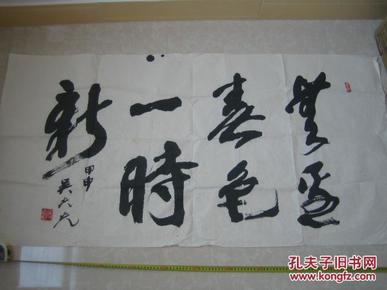 無邊
春色
一時
新
甲申
孔夫子旧书网
www.kongfz.com